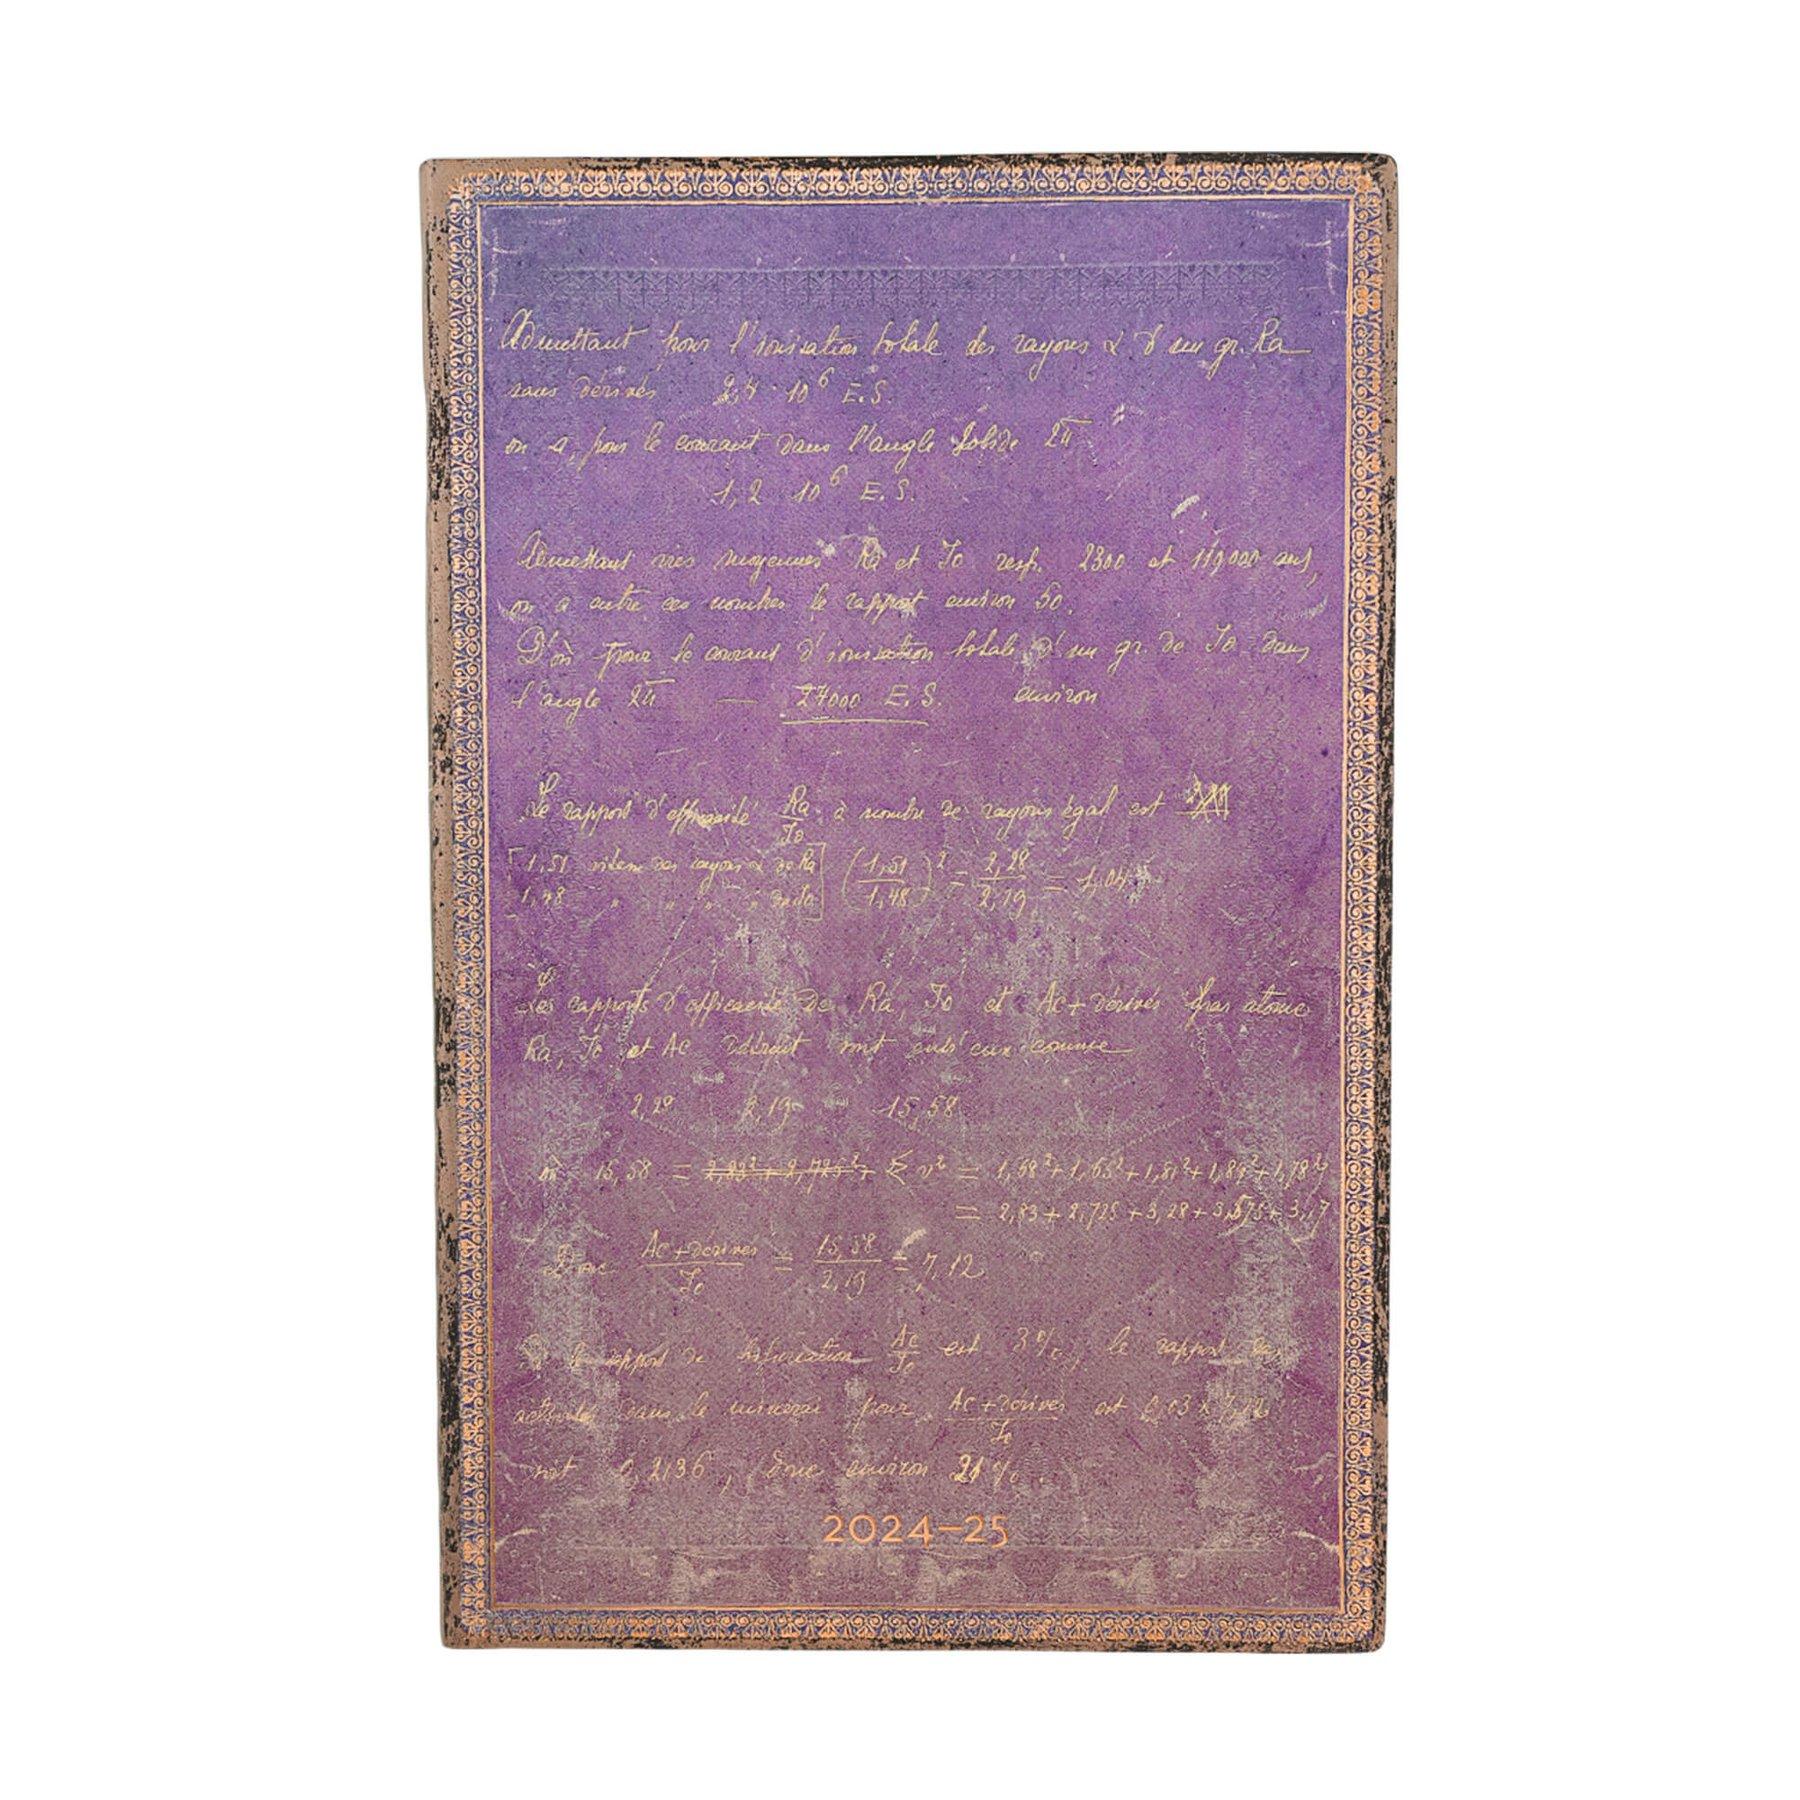 Admettant pour l'ionisation totale des rayons α d'un gr. Ra
sans dérivés 2,4 · 10⁶ E.S.
on a, pour le courant dans l'angle solide 2π
1,2 10⁶ E.S.
Admettant vies moyennes Ra et Io resp. 2300 et 119000 ans,
on a entre ces nombres le rapport environ 50.
D'où pour le courant d'ionisation totale d'un gr. de Io dans
l'angle 2π — 27000 E.S. environ
Le rapport d'efficacité Ra/Io à nombre de rayons égal est
[1,51 vitesse des rayons α de Ra
1,48 " " " " de Io] (1,51/1,48)² = 2,28/2,19 = 1,04
Les rapports d'efficacité de Ra, Io et Ac+dérivés par atome
Ra, Io et Ac détruit sont entr'eux comme
2,28 2,19 15,58
où 15,58 = 2,83²+2,725²+ Σ v² = 1,68²+1,65²+1,81²+1,89²+1,78²
= 2,83+2,725+3,28+3,575+3,17
Donc Ac+dérivés/Io = 15,58/2,19 = 7,12
Si le rapport de bifurcation Ac/Io est 3%, le rapport des
activités dans le minerai pour Ac+dérivés/Io est 0,03 × 7,12
soit 0,2136, donc environ 21%.
2024–25